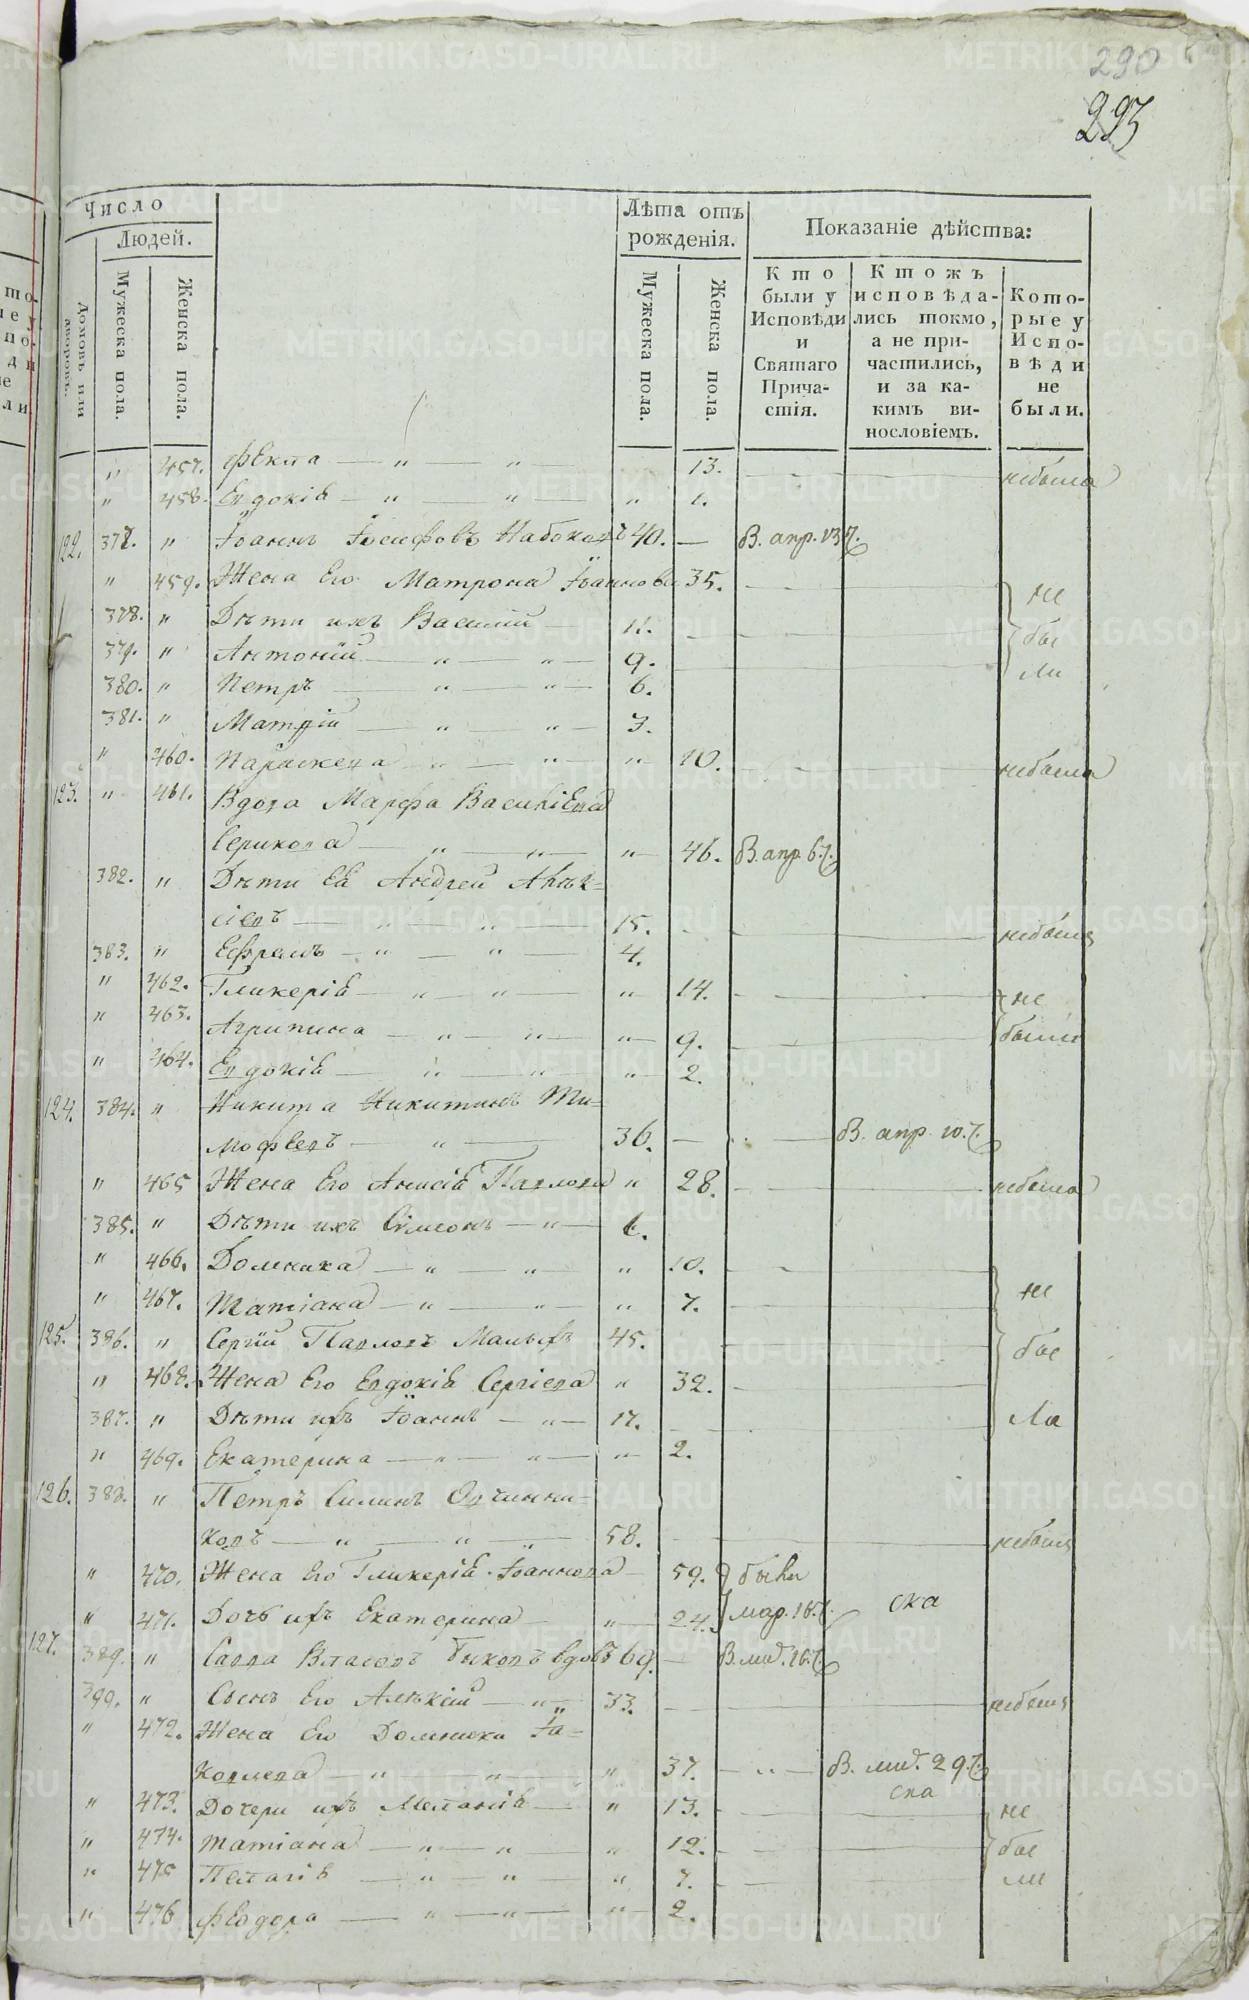 290
293
Число
Людей.
Домовъ или дворовъ.
Мужеска пола.
Женска пола.
Лѣта отъ рожденія.
Мужеска пола.
Женска пола.
Показаніе дѣйства:
Кто были у Исповѣди и Святаго Причастія.
Ктожъ исповѣдались токмо, а не причастились, и за какимъ винословіемъ.
Которые у Исповѣди не были.
„ 457. Фекла — „ — „ — 13. небыла
„ 458. Евдокія — „ — „ — „ 1.
122. 377. „ Іоаннъ Іосифовъ Набоковъ 40. — В. апр. 13 ч.
„ 459. Жена Его Матрона Іоаннова 35. не
378. „ Дѣти ихъ Василій — 11. бы
379. „ Антоній — „ — „ — 9. ли
380. „ Петръ — „ — „ — 6.
381. „ — „ — „ — 3.
„ 460. Параскева — „ — „ — „ 10. небыла
123. „ 461. Вдова Марфа Василіева
Серикова — „ — „ — „ 46. В. апр. 6 ч.
382. „ Дѣти Ея Андрей Алек=
сіевъ — „ — „ — 15. небылъ
383. „ Ефремъ — „ — „ — 4.
„ 462. Гликерія — „ — „ — „ 14. не
„ 463. Агрипина — „ — „ — „ 9. были
„ 464. Евдокія — „ — „ — „ 2.
124. 384. „ Никита Никитинъ Ти=
мофеевъ — „ — 36. — В. апр. 10. ч.
„ 465 Жена Его Анисія Павлова „ 28. небыла
385. „ Дѣти ихъ Сѵмеонъ — „ — 6.
„ 466. Домника — „ — „ — „ 10.
„ 467. Татіана — „ — „ — „ 7. не
125. 386. „ Сергій Павловъ 45. бы
„ 468. Жена Его Евдокія Сергіева „ 32.
387. „ Дѣти ихъ Іоаннъ — „ — 17. ли
„ 469. Екатерина — „ — „ — „ 2.
126. 388. „ Петръ Силинъ Овчинни=
ковъ — „ — „ — „ — 58. небылъ
„ 470. Жена Его Гликерія Іоаннова — 59. были
„ 471. Дочь ихъ Екатерина — „ 24. мар. 16. ч. ска
127. 389. „ Савва Власовъ Быковъ вдовъ 69. — 16. ч.
390. „ Сынъ Его Алекій — „ — 33. небылъ
„ 472. Жена Его Домника Іа=
ковлева — „ — „ — „ 37. — „ — 29. ч.
ска
„ 473. Дочери ихъ Меланія — „ 13. не
„ 474. Татіана — „ — „ — „ 12. бы
„ 475 Пелагія — „ — „ — „ 7. ли
„ 476 Феодора — „ — „ — „ 2.
METRIKI.GASO-URAL.RU